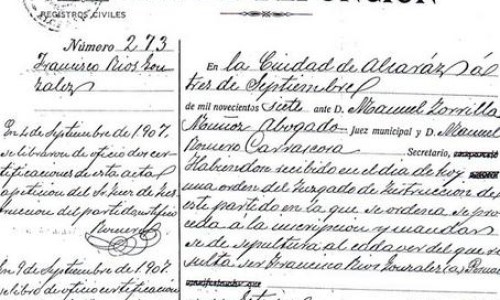 REGISTROS CIVILES
Número 273
Francisco Rios Gon
zalez
En 4 de Septiembre de 1907.
se libraron de oficio dos cer-
tificaciones de esta acta
a peticion del Sr. Juez de Ins
truccion del partido, certifico
Romero
En 9 de Septiembre de 1907.
se libró de oficio certificación
En la Ciudad de Alcaráz á
tres de Septiembre
de mil novecientos siete ante D. Manuel Zorrilla
Muñoz Abogado Juez municipal y D. Manuel
Romero Carrascosa Secretario,
Habiendose recibido en el dia de hoy
una orden del Juzgado de Instruccion de
este partido en la que se ordena se pro
ceda á la inscripcion y mandar
se dé sepultura al cadaver del que re
sulta ser Francisco Rios Gonzalez (a)